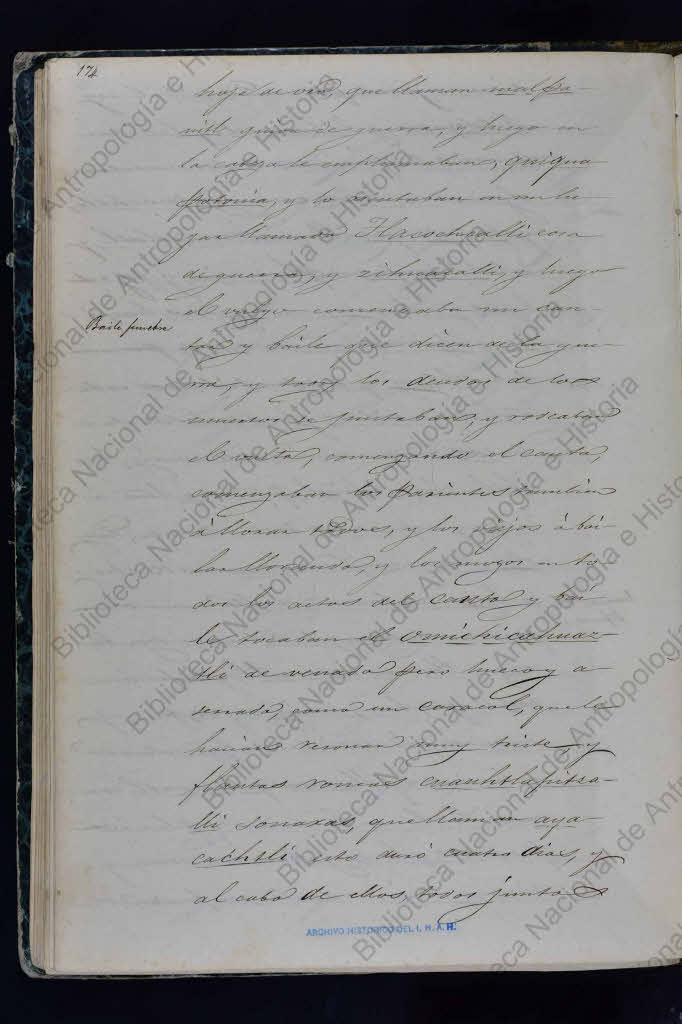 174
hoja de oro, que llaman malpa-
nitl guion de guerra, y luego en
la cabeza le emplumaban, quiqua
potonia, y lo sentaban en un lu-
gar llamado Tlacochcalli casa
de guerra, y zihuacalli, y luego
el vulgo comenzaba un can-
tar y baile que dicen de la gue-
rra, y todos los deudos de los
muertos se juntaban, y rodeaban
el vulto, comenzando el canto,
comenzaban los parientes tambien
á llorar todos, y los viejos á bai-
lar llorando, y los mozos en to-
dos los actos del canto y bai-
le tocaban el Omichicahuaz-
tli de venado pero hueco y a-
serrado, como un caracol, que le
hacian resonar muy triste y
flautas roncas cuauhtlapitza-
lli sonaxas, que llaman aya-
cachtli esto duró cuatro dias, y
al cabo de ellos, todos juntos
Baile funebre
ARCHIVO HISTORICO DEL I. N. A. H.
Biblioteca Nacional de Antropología e Historia